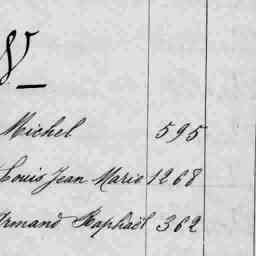 W
Michel 595
Louis Jean Marie 1268
Armand Raphaël 362